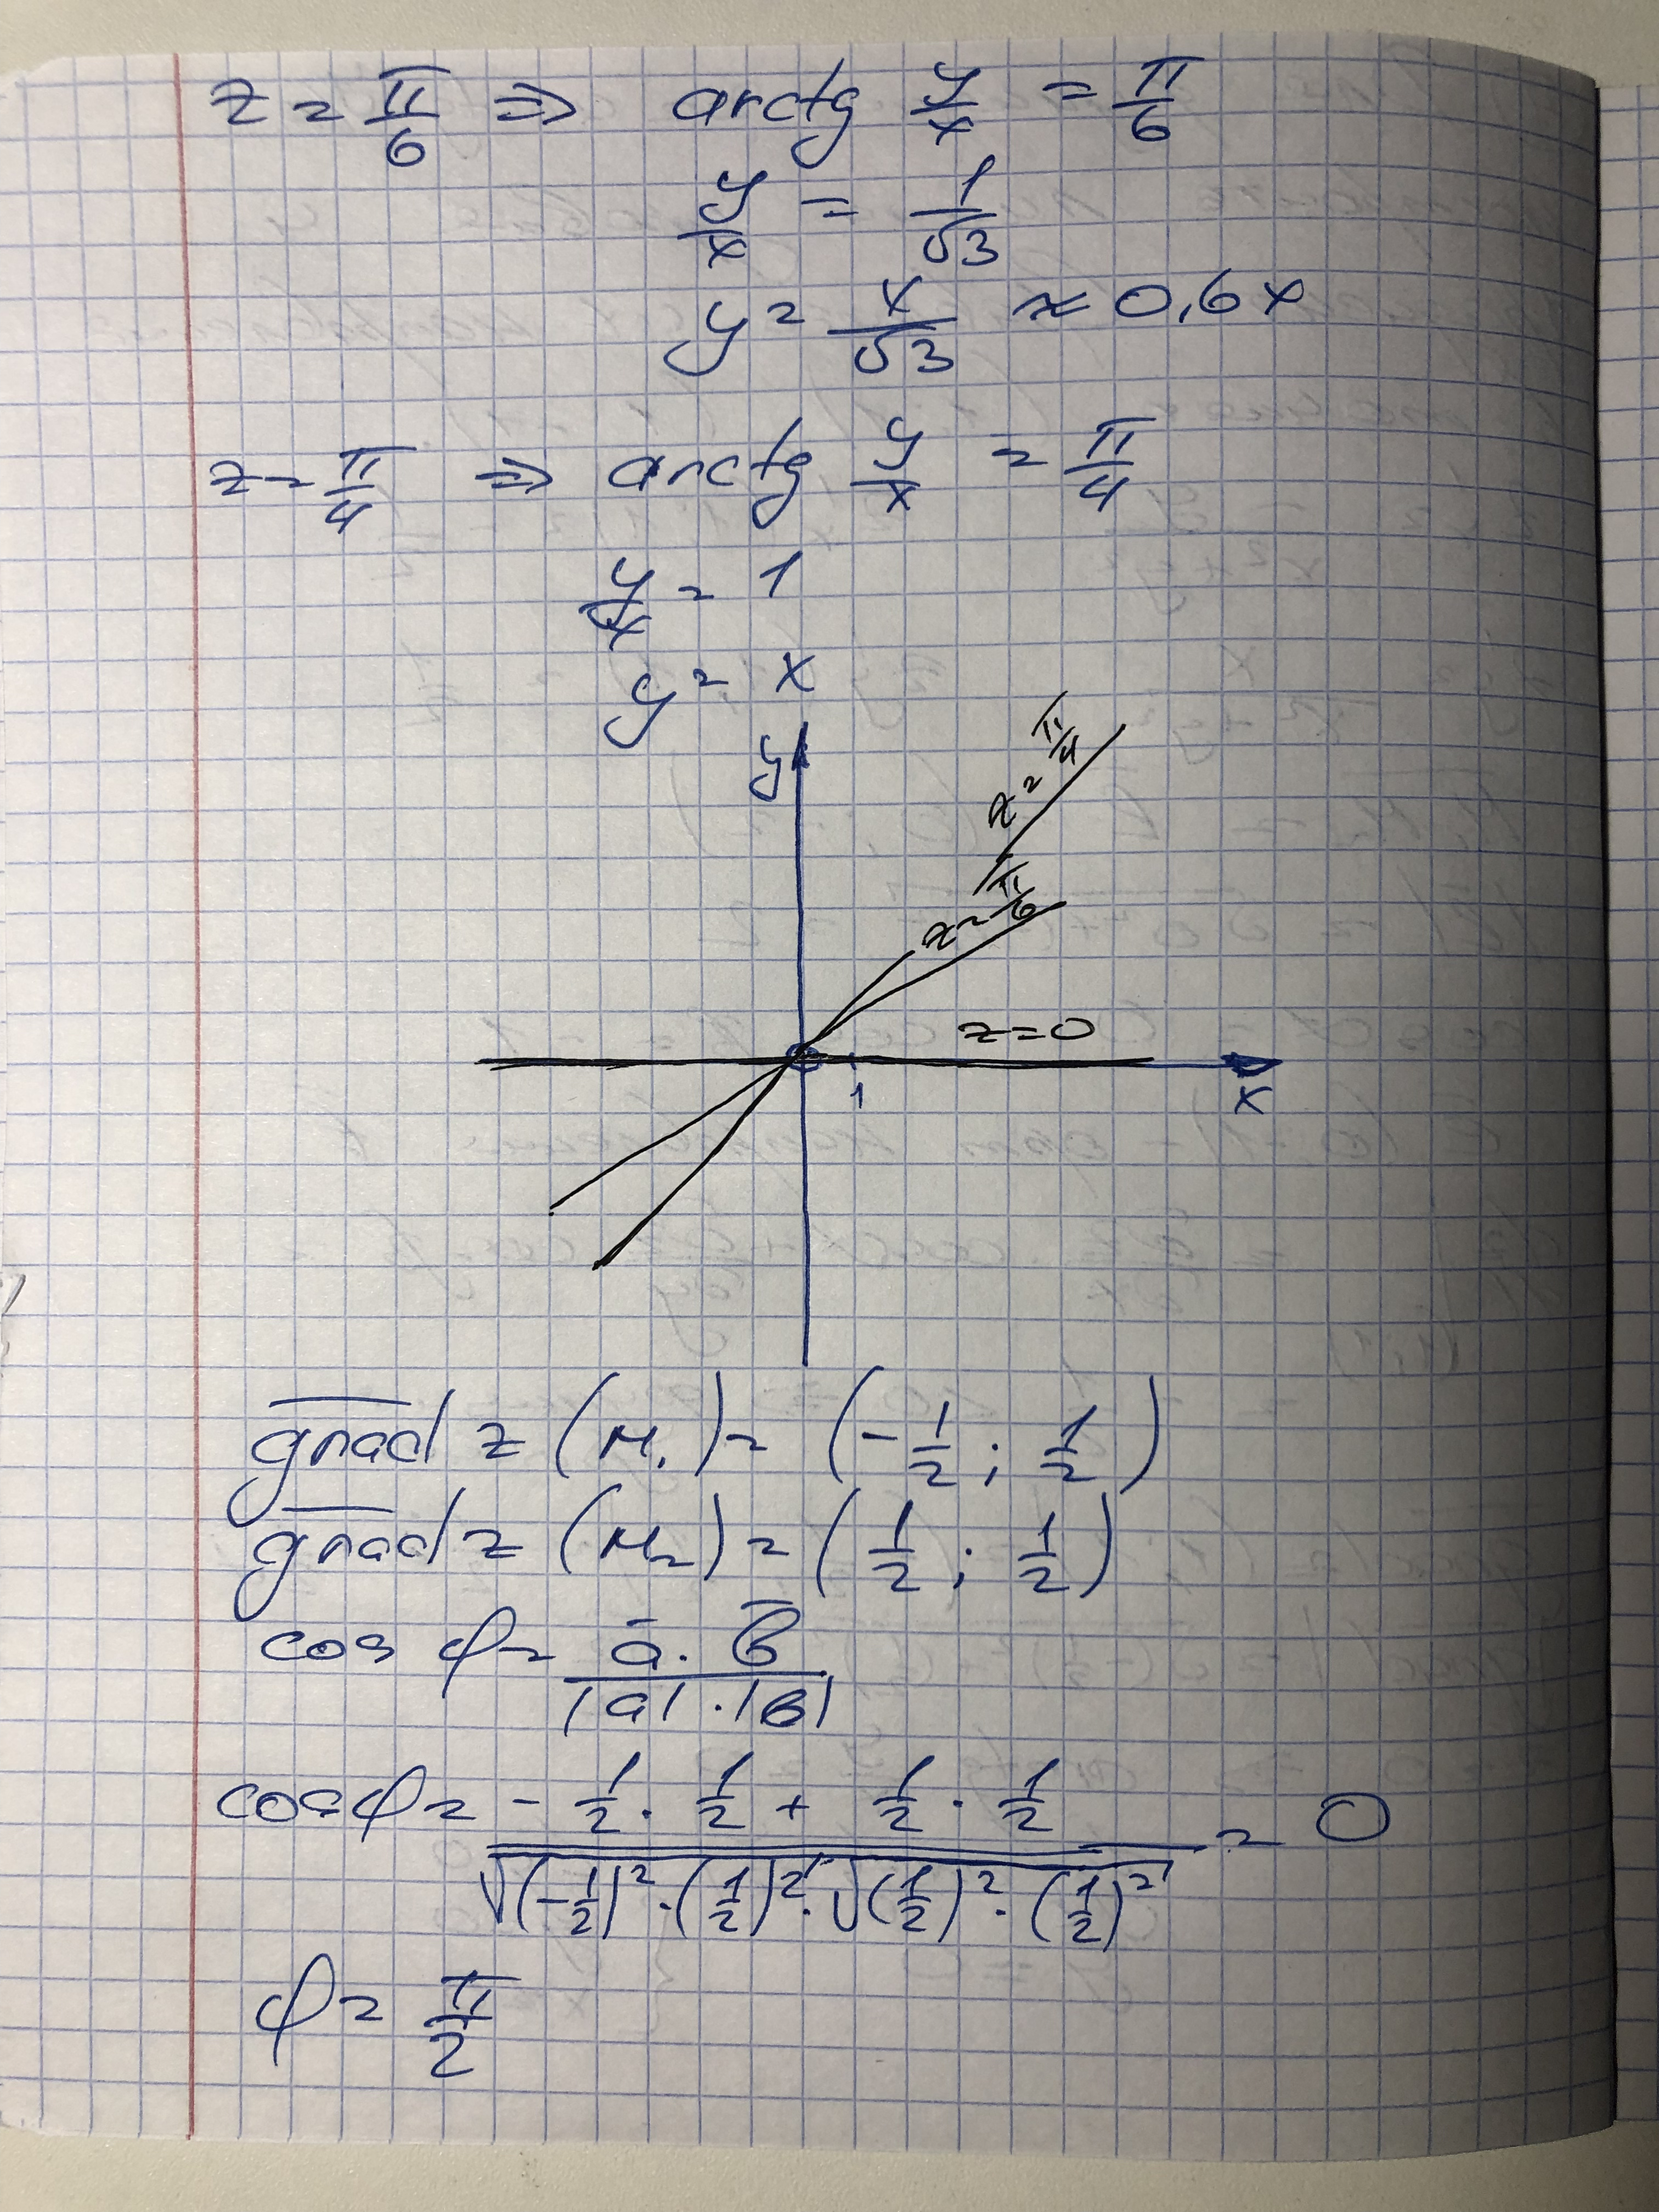 z = π/6 ⇒ arctg y/x = π/6
y/x = 1/√3
y = x/√3 ≈ 0,6x
z = π/4 ⇒ arctg y/x = π/4
y/x = 1
y = x
y
z = π/4
z = π/6
z = 0
1
x
grad z (M₁) = (-1/2; 1/2)
grad z (M₂) = (1/2; 1/2)
cos φ = ā · b̄ / |a| · |b|
cos φ = (-1/2 · 1/2 + 1/2 · 1/2) / (√((-1/2)² · (1/2)²) · √((1/2)² · (1/2)²)) = 0
φ = π/2